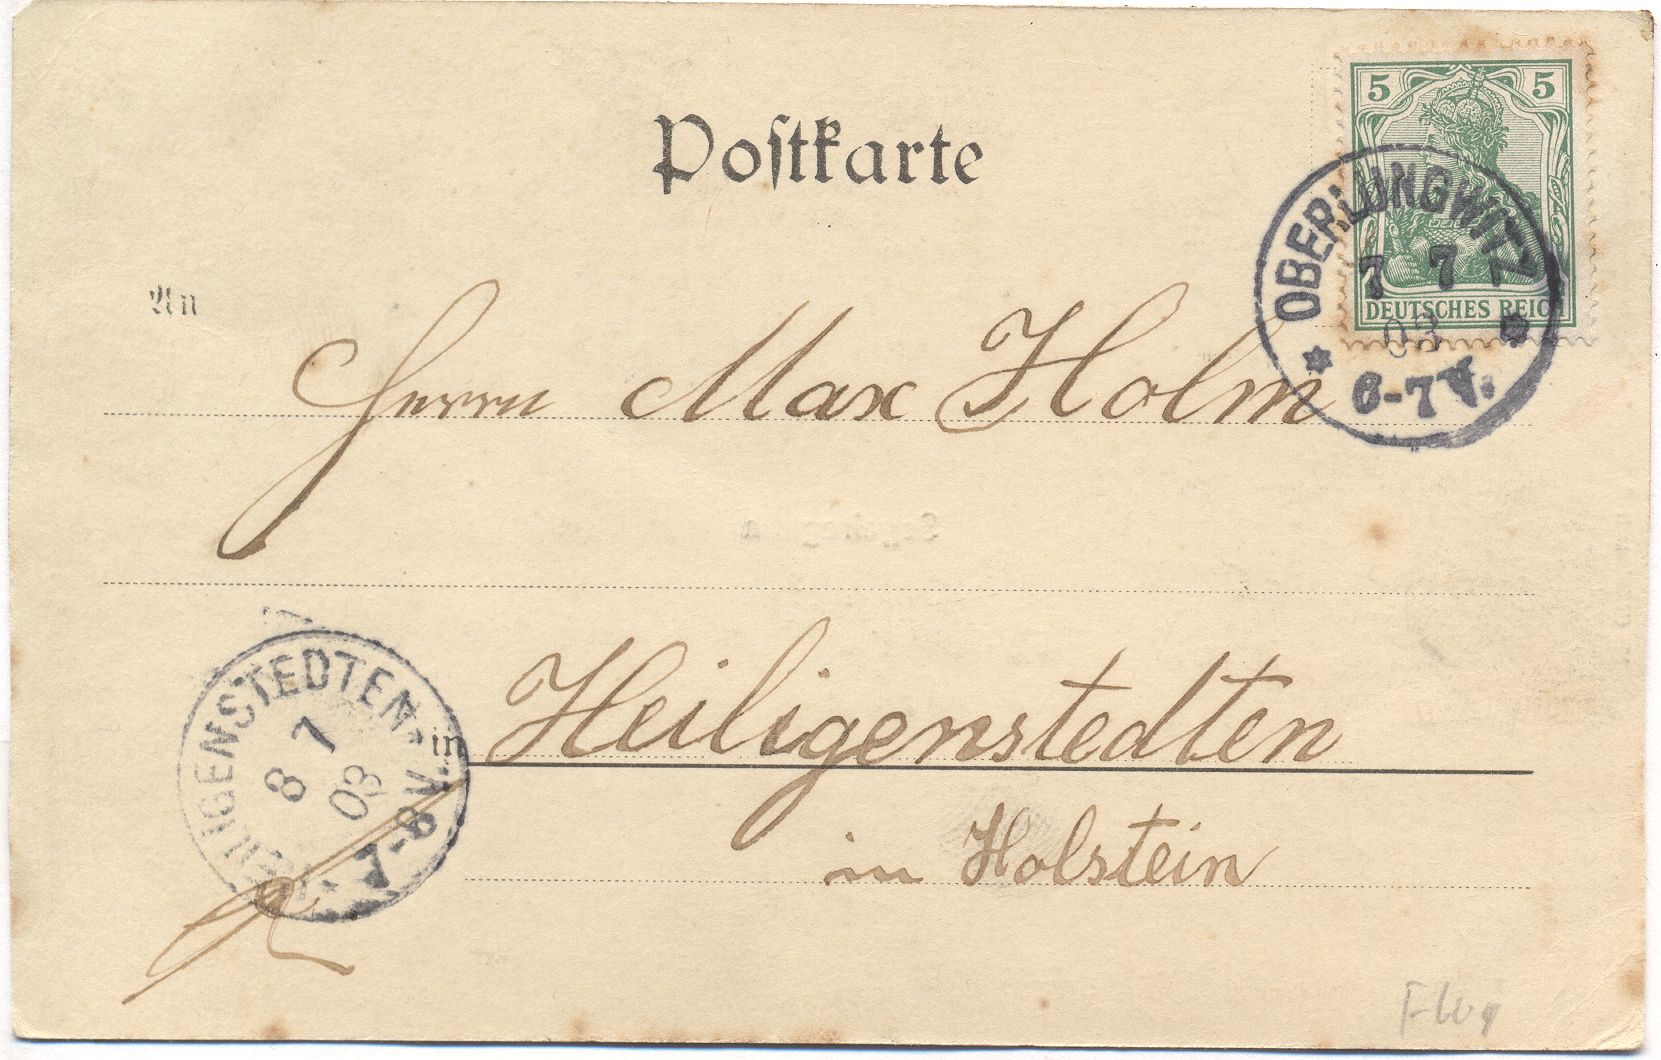 Postkarte
5 5
DEUTSCHES REICH
OBERLUNGWITZ
7 7
03
6-7 V.
An
Herrn Max Holm
in Heiligenstedten
in Holstein
HEILIGENSTEDTEN
8 7
03
7-8 V.